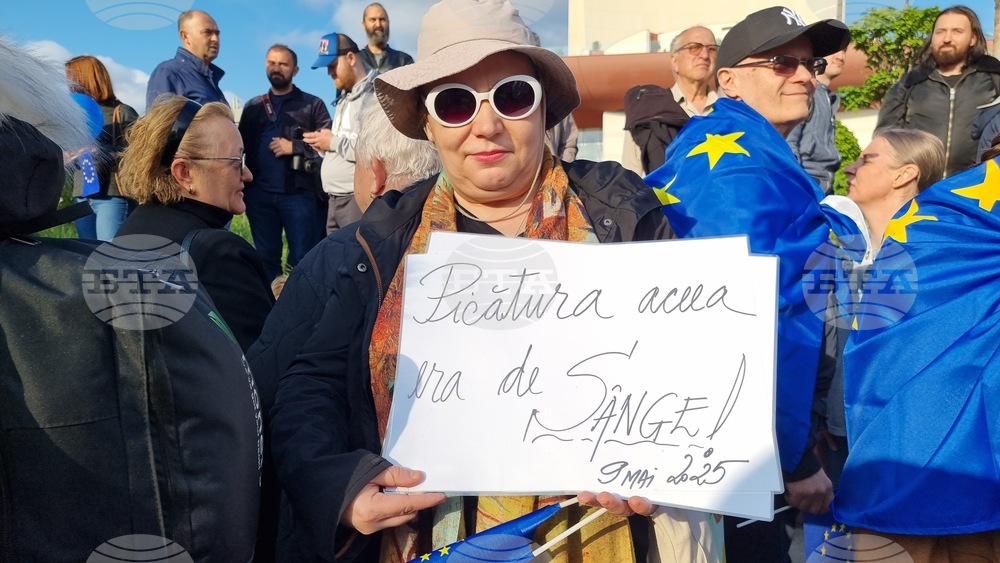 Picătura aceea
era de SÂNGE!
9 MAI 2025
BTA
BTA
NY